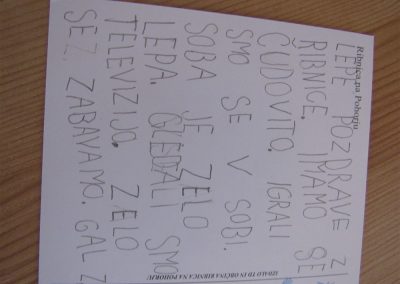 Ribnica na Pohorju
LEPE POZDRAVE Z
RIBNICE. IMAMO SE
ČUDOVITO. IGRALI
SMO SE V SOBI.
SOBA JE ZELO
LEPA. GLEDALI SMO
TELEVIZIJO. ZELO
SE ZABAVAMO. GAL Ž
IZDALO TD IN OBČINA RIBNICA NA POHORJU